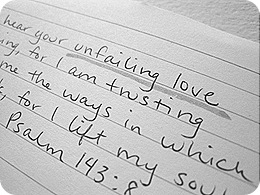 hear your unfailing love
ing, for I am trusting
me the ways in which
, for I lift my soul
Psalm 143:8